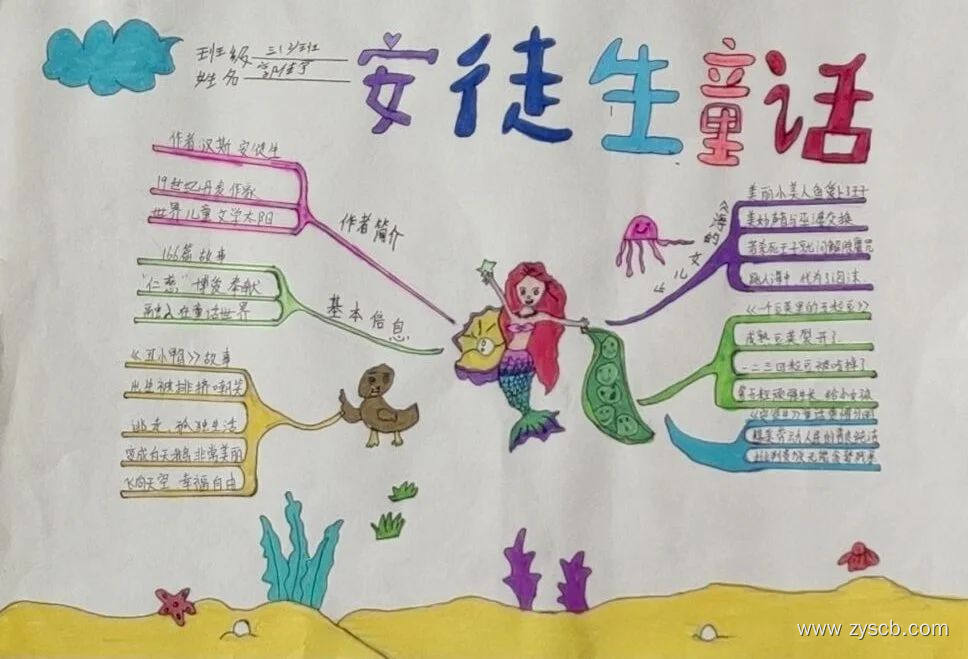 班级 三(3)班
姓名
安徒生童话
作者 汉斯 安徒生
19世纪丹麦作家
世界儿童文学太阳
作者简介
166篇 故事
"仁慈" 博爱 奉献
融入在童话世界
基本信息
《丑小鸭》故事
出生被排挤嘲笑
出走 孤独生活
变成白天鹅非常美丽
飞向天空 幸福自由
《海的女儿》
美丽小美人鱼爱上王子
美妙声音与巫婆交换
跳入海中 化为了泡沫
《一个豆荚里的五粒豆》
成熟豆荚裂开了
一二三四粒豆被吃掉了
第五粒顽强生长 给小女孩
www.zyscb.com